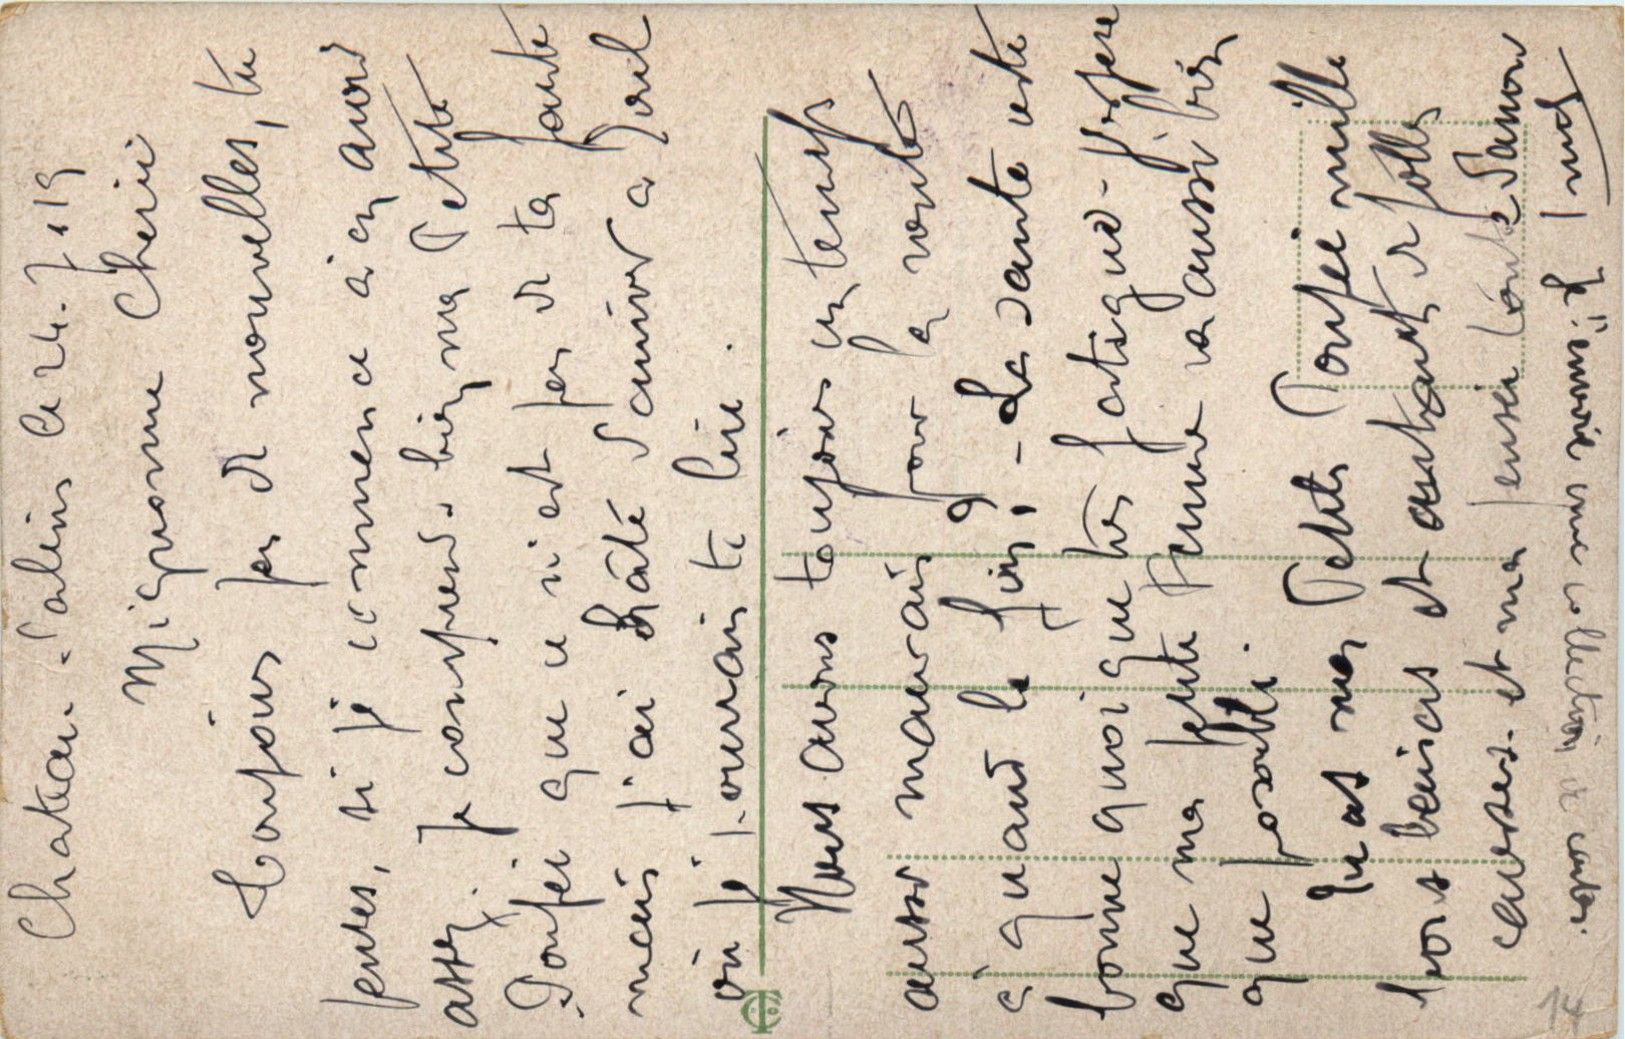 Chateau-Salins le 24.7.19
Mignonne Cherie
Toujours pas de nouvelles, tu
penses, si je commence à en avoir
assez. Je comprend bien ma Petite
Poupée que ce n'est pas de ta faute
mais j'ai hâte d'arriver a Joul
où je pourrais te lire.
Nous avons toujours un temps
aussi mauvais pour la route
à quand la fin, - La santé reste
bonne quoique très fatigué - J'espere
que ma petite Femme va aussi bien
que possible.
Jusas mes Petite Poupée mille
bons baisers et autant de folles
caresses - et ma pensée toute d'amour
de cartes. une collection
14